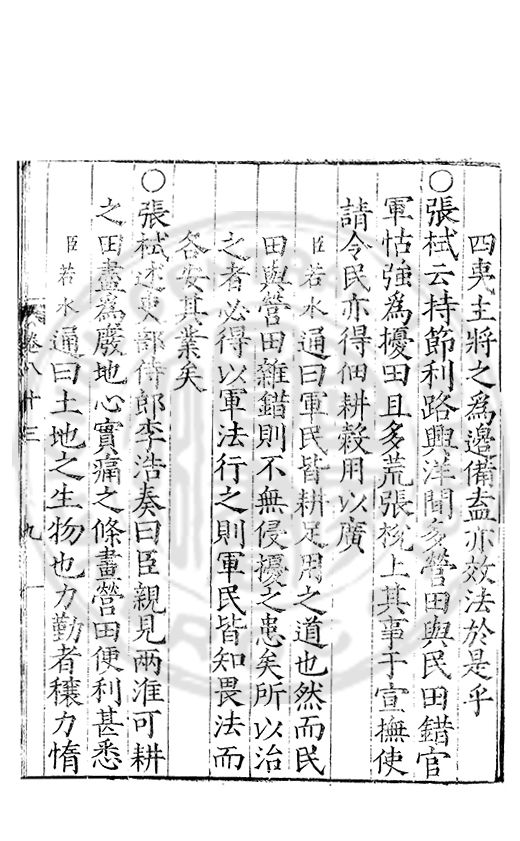 四夷主將之為邊備盍亦效法於是乎
○張栻云持節利路興洋間多營田與民田錯官
軍怙強為擾田且多荒張梲上其事于宣撫使
請令民亦得佃耕穀用以廣
臣若水通曰軍民皆耕足用之道也然而民
田與營田雜錯則不無侵擾之患矣所以治
之者必得以軍法行之則軍民皆知畏法而
各安其業矣
○張栻述吏部侍郎李浩奏曰臣親見兩淮可耕
之田盡為廢地心實痛之條畫營田便利甚悉
臣若水通曰土地之生物也力勤者穰力惰
卷八十三 九